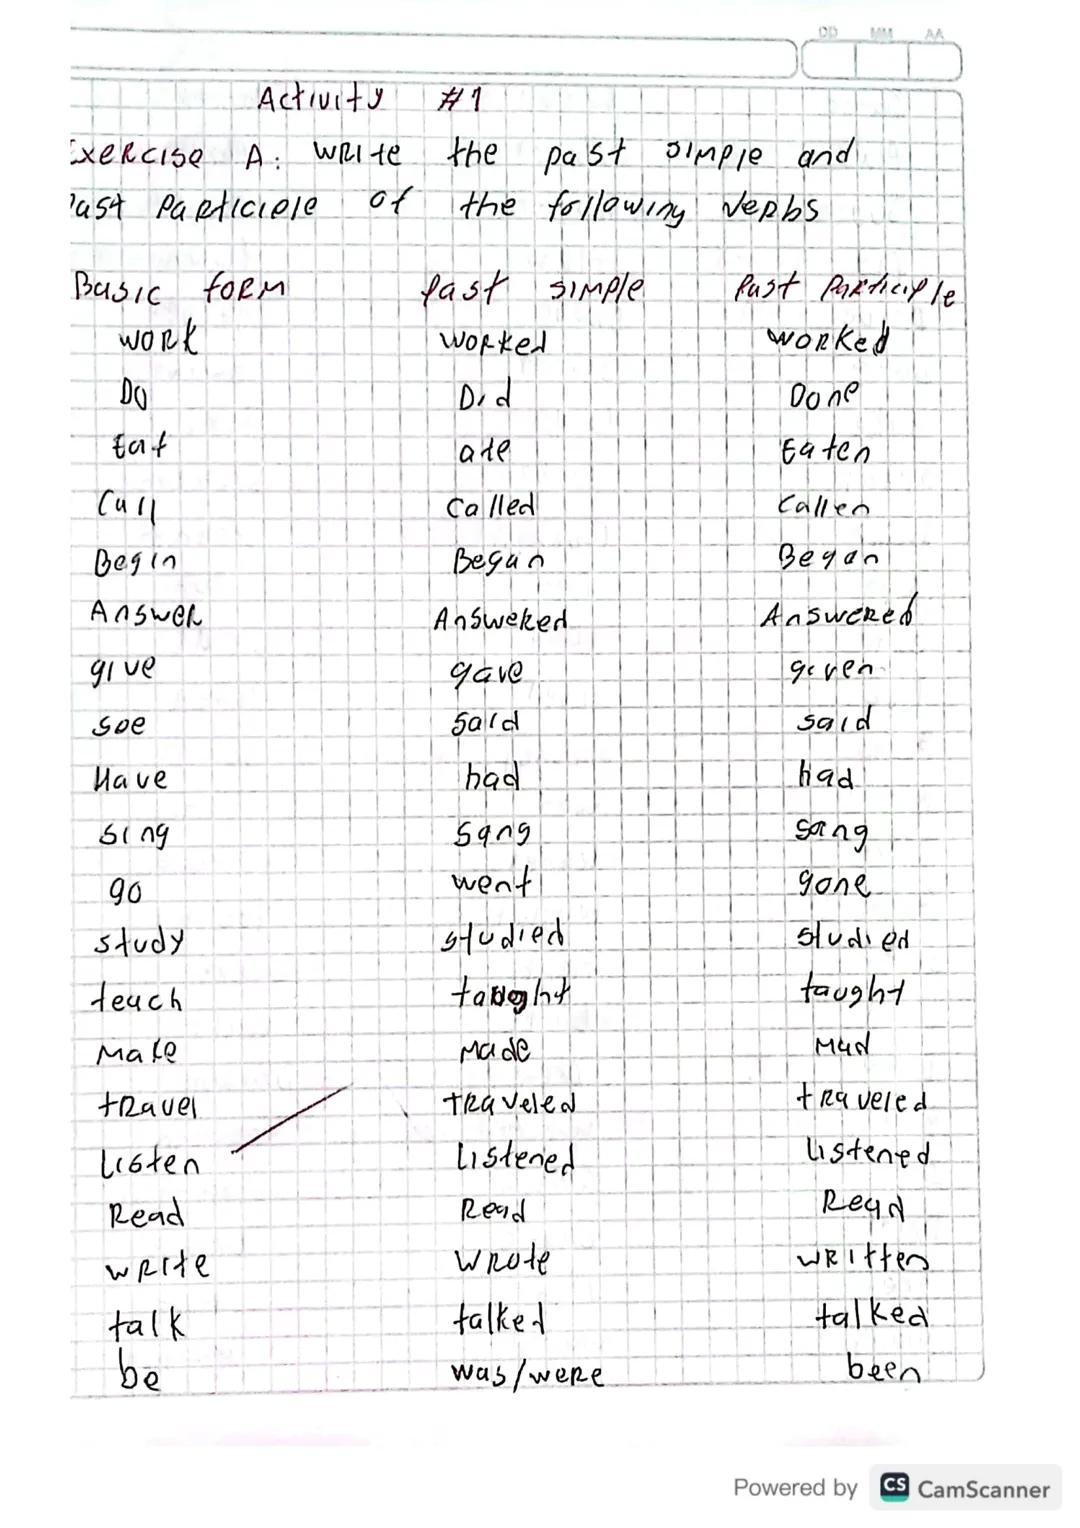 DD MM AA
Activity #1
Exercise A: Write the past simple and
Past Participle of the following Verbs
Basic form Past simple Past Participle
work worked worked
Do Did Done
Eat ate Eaten
Call Called Callen
Begin Began Began
Answer Answered Answered
give gave given
soe said said
Have had had
sing sang sang
go went gone
study studied studied
teach taught taught
Make Made Mad
travel traveled traveled
Listen Listened Listened
Read Read Read
write wrote written
talk talked talked
be was/were been
Powered by CS CamScanner